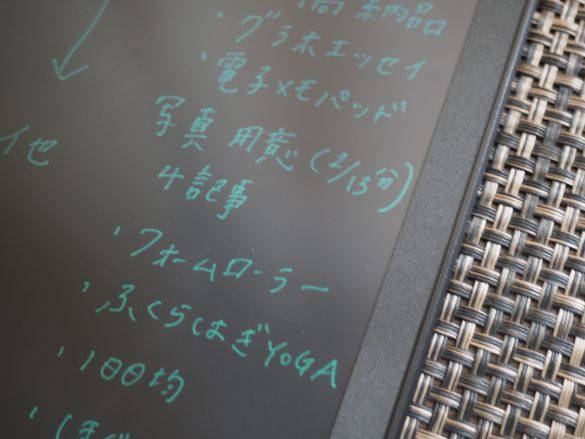 納品
・グラホエッセイ
・電子メモパッド
写真 用意 (2/13分)
イ也
4記事
・フォームローラー
・ふくらはぎYOGA
・100均